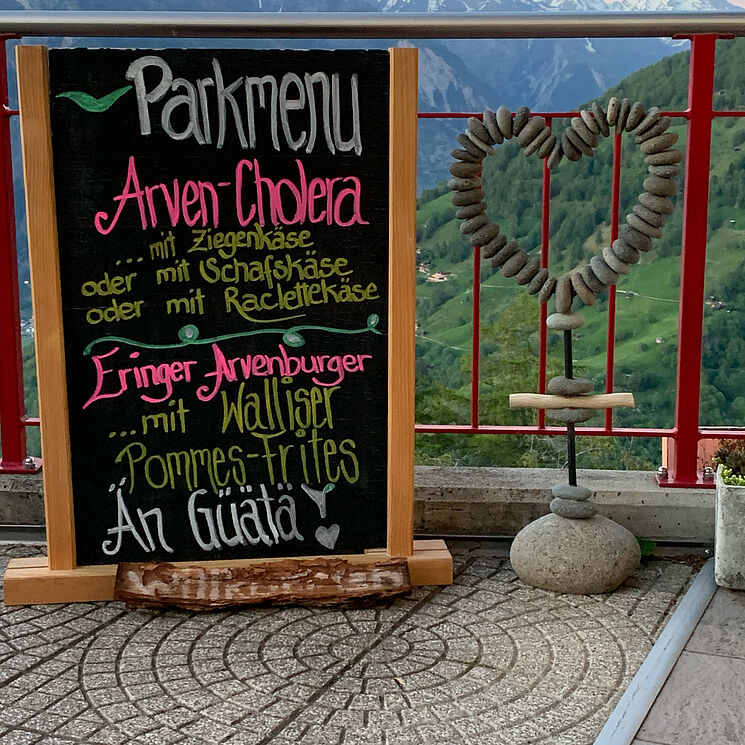 Parkmenu
Arven-Cholera
...mit Ziegenkäse
oder mit Schafskäse
oder mit Raclettekäse
Eringer Arvenburger
...mit Walliser
Pommes-frites
Än Güätä!